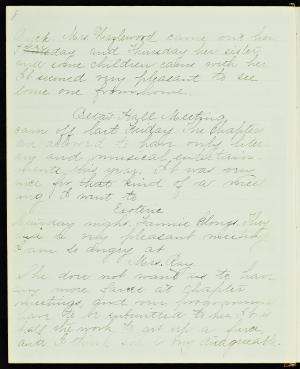 8
Mrs. Hazlewood came out here
Tuesday and Thursday her sister
and some children came with her
It seemed very pleasant to see
some one from home.
Hall Meeting
cam off last Friday. The chapter
are allowed to have only liter
ary and musical entertain-
ments, this year. It was very
nice for that kind of a meet
ing. I went to
Saturday night, Fannie They
had a very pleasant meeting
I am so angry at
Mrs. Ray
She does not want us to have
any more farces at chapter
meetings, and our programme
have to be submitted to her. It is
half the work to get up a farce,
and I think she is very disagreeable.